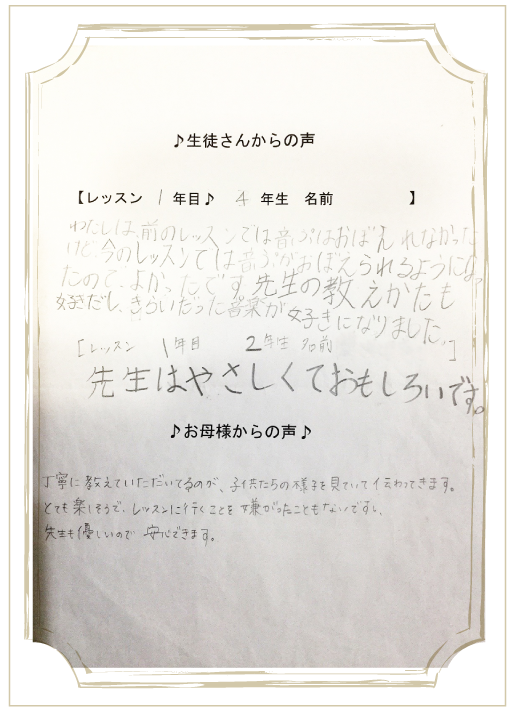 ♪生徒さんからの声
【レッスン 1 年目♪ 4 年生 名前 】
わたしは、前のレッスンでは音ぷはおぼえれなかった
けど今のレッスンでは音ぷがおぼえられるようになっ
たので、よかったです。先生の教えかたも
好きだし、きらいだった音楽が好きになりました。
[レッスン 1年目 2年生 名前 ]
先生はやさしくておもしろいです。
♪お母様からの声♪
丁寧に教えていただいてるのが、子供たちの様子を見ていて伝わってきます。
とても楽しそうで、レッスンに行くことを嫌がったこともないですし、
先生も優しいので安心できます。